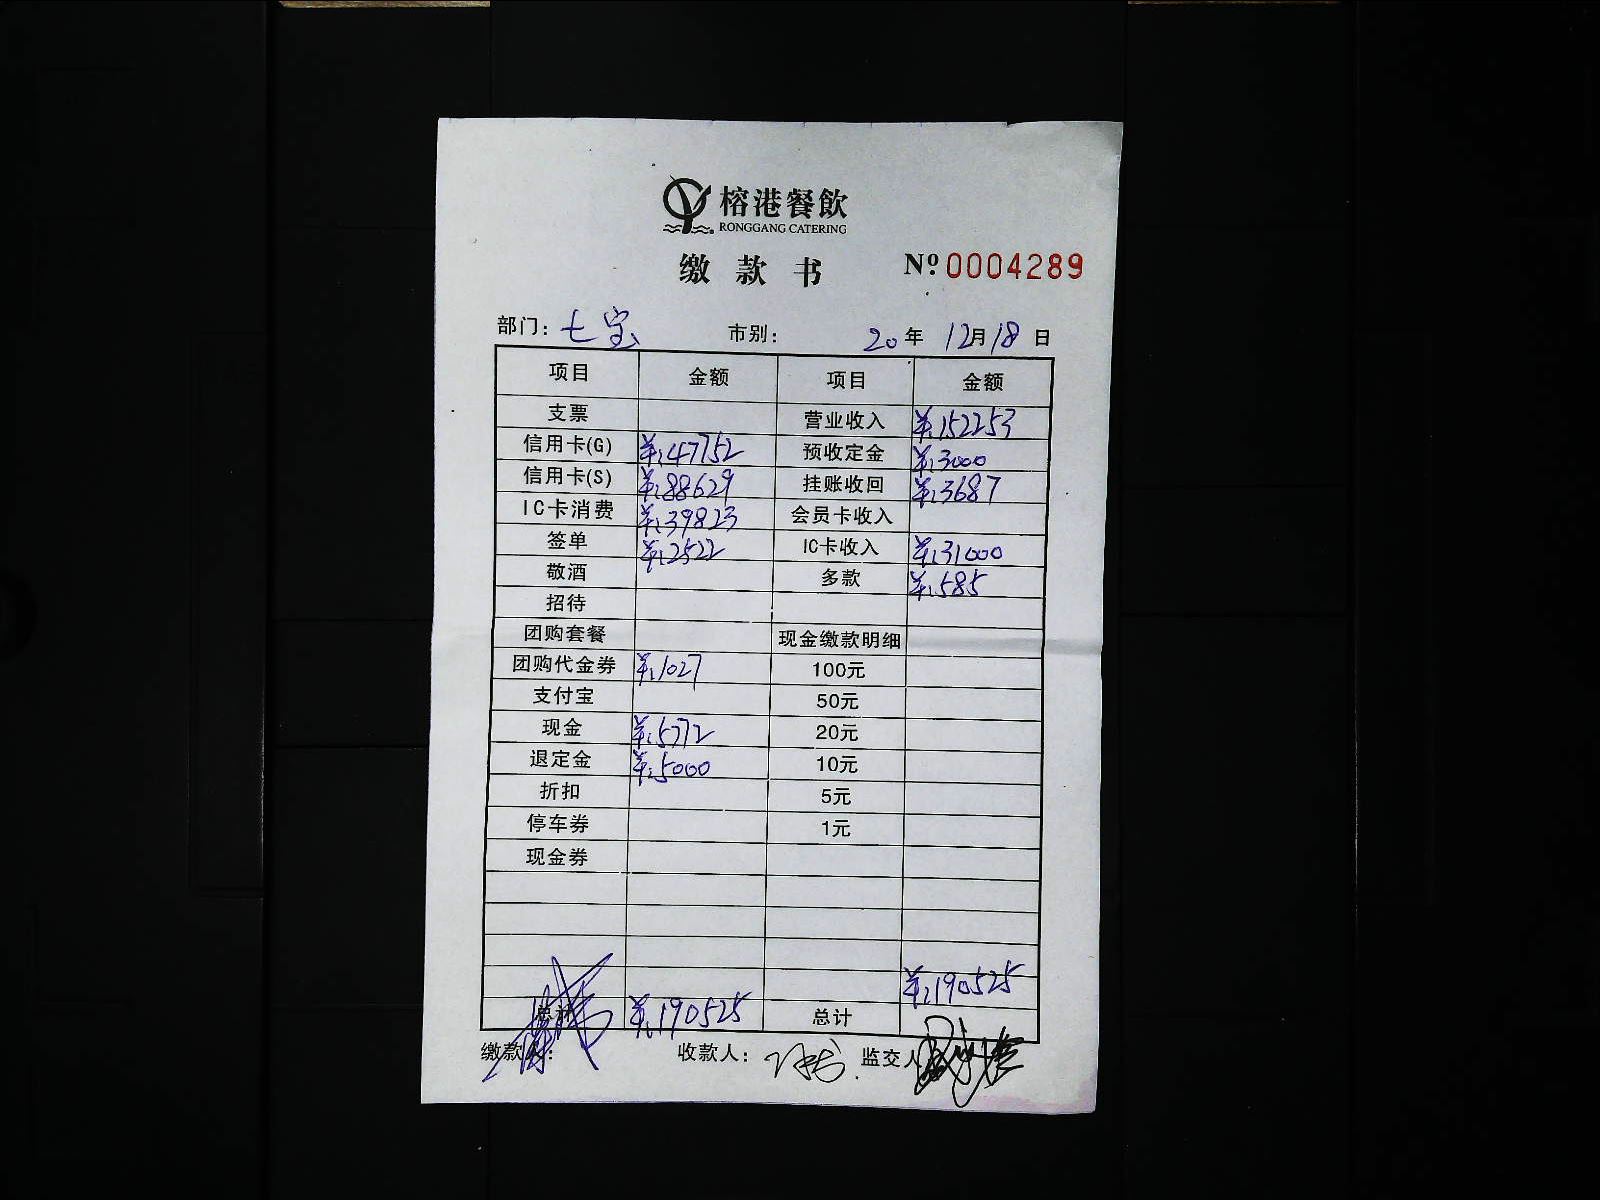 榕港餐飲
RONGGANG CATERING
缴款书 Nº 0004289
部门: 七宝 市别: 20年 12月18日
项目 金额 项目 金额
支票 营业收入 ¥:152253
信用卡(G) ¥:47752 预收定金 ¥:3000
信用卡(S) ¥:88629 挂账收回 ¥:3687
IC卡消费 ¥:39823 会员卡收入
签单 ¥:2522 IC卡收入 ¥:31000
敬酒 多款 ¥:585
招待
团购套餐 现金缴款明细
团购代金券 ¥:1027 100元
支付宝 50元
现金 ¥:5772 20元
退定金 ¥:5000 10元
折扣 5元
停车券 1元
现金券
¥:190525
总计 ¥:190525 总计
缴款人: 收款人: 监交人